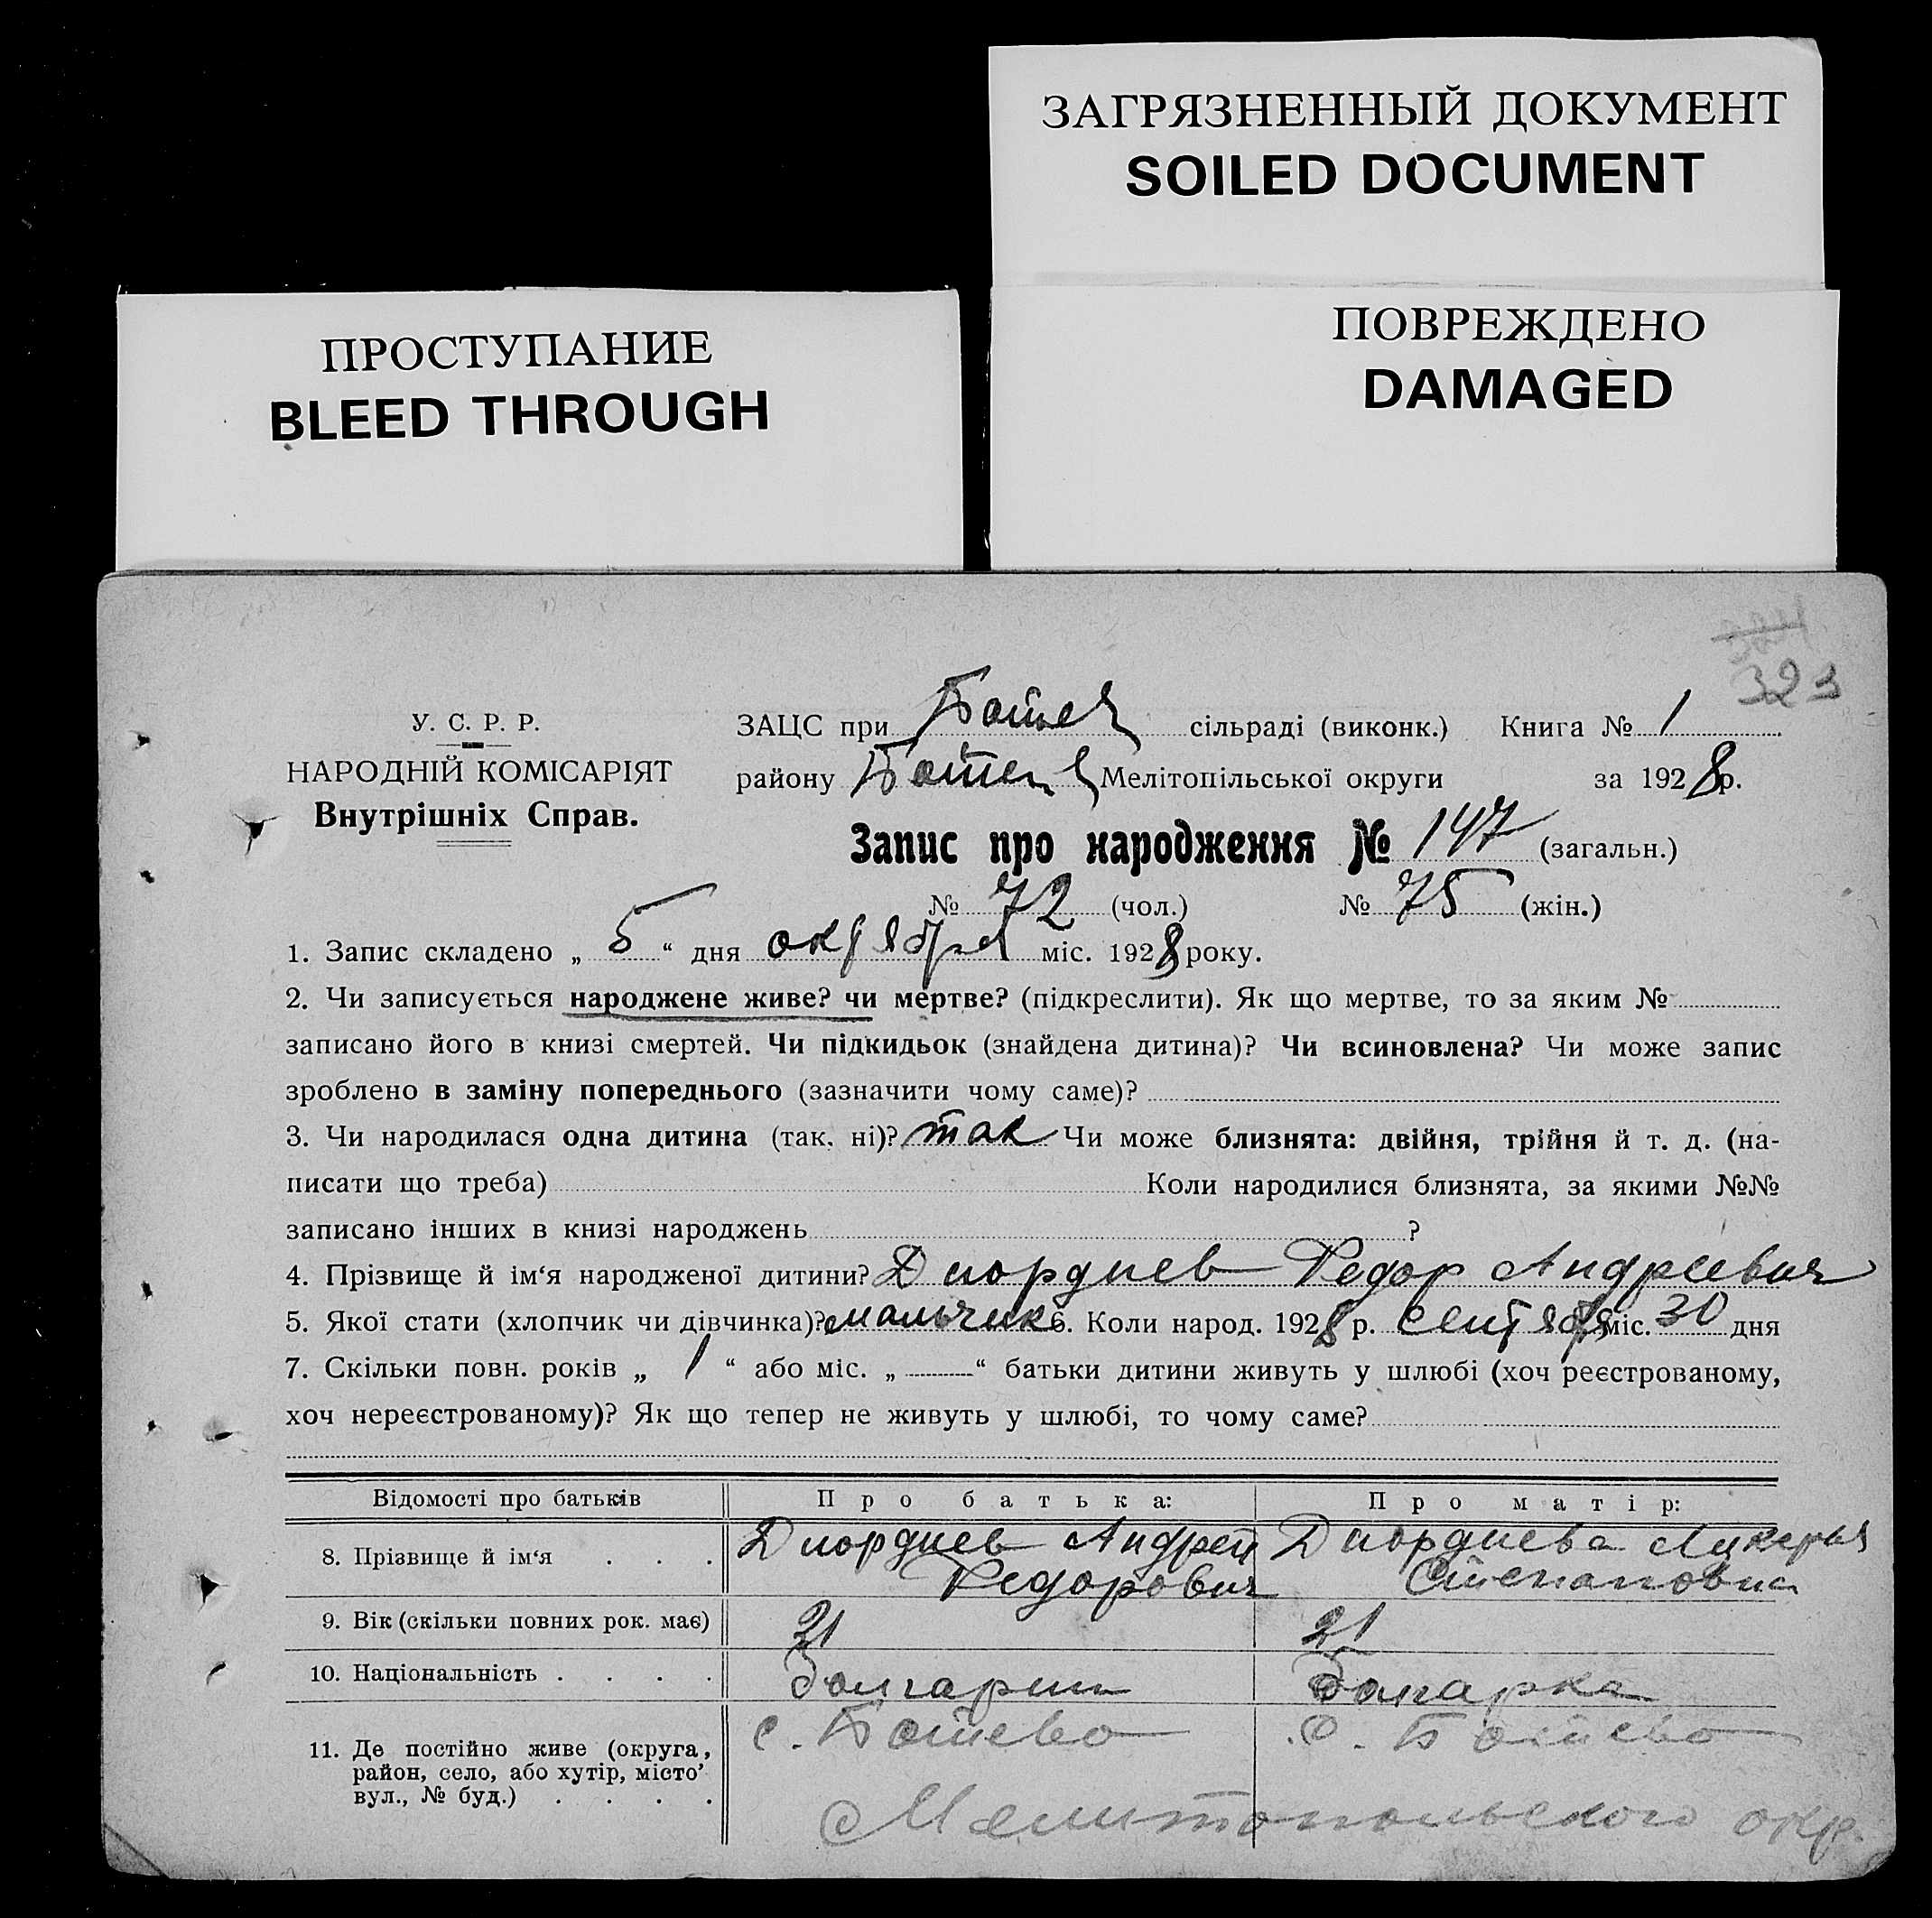 ЗАГРЯЗНЕННЫЙ ДОКУМЕНТ
SOILED DOCUMENT
ПРОСТУПАНИЕ
BLEED THROUGH
ПОВРЕЖДЕНО
DAMAGED
323
У. С. Р. Р.
НАРОДНІЙ КОМІСАРІЯТ
Внутрішніх Справ.
ЗАЦС при Ботев сільраді (виконк.) Книга № 1
району Ботев Мелітопільської округи за 1928 р.
Запис про народження № 147 (загальн.)
№ 72 (чол.) № 75 (жін.)
1. Запис складено „ 5 “ дня октября міс. 1928 року.
2. Чи записується народжене живе? чи мертве? (підкреслити). Як що мертве, то за яким №
записано його в книзі смертей. Чи підкидьок (знайдена дитина)? Чи всиновлена? Чи може запис
зроблено в заміну попереднього (зазначити чому саме)?
3. Чи народилася одна дитина (так, ні)? так Чи може близнята: двійня, трійня й т. д. (на-
писати що треба) Коли народилися близнята, за якими №№
записано інших в книзі народжень ?
4. Прізвище й ім‘я народженої дитини? Диордиев Федор Андреевич
5. Якої стати (хлопчик чи дівчинка)? мальчик 6. Коли народ. 1928 р. сентября міс. 30 дня
7. Скільки повн. років „ 1 “ або міс. „ “ батьки дитини живуть у шлюбі (хоч реєстрованому,
хоч нереєстрованому)? Як що тепер не живуть у шлюбі, то чому саме?
Відомості про батьків Про батька: Про матір:
8. Прізвище й ім‘я . . . Диордиев Андрей Федорович Диордиева Лукерья Степановна
9. Вік (скільки повних рок. має) 21 21
10. Національність . . . . болгарин болгарка
11. Де постійно живе (округа, район, село, або хутір, місто’ вул., № буд.) . . . . с. Ботево с. Ботево
Мелитопольского окр.